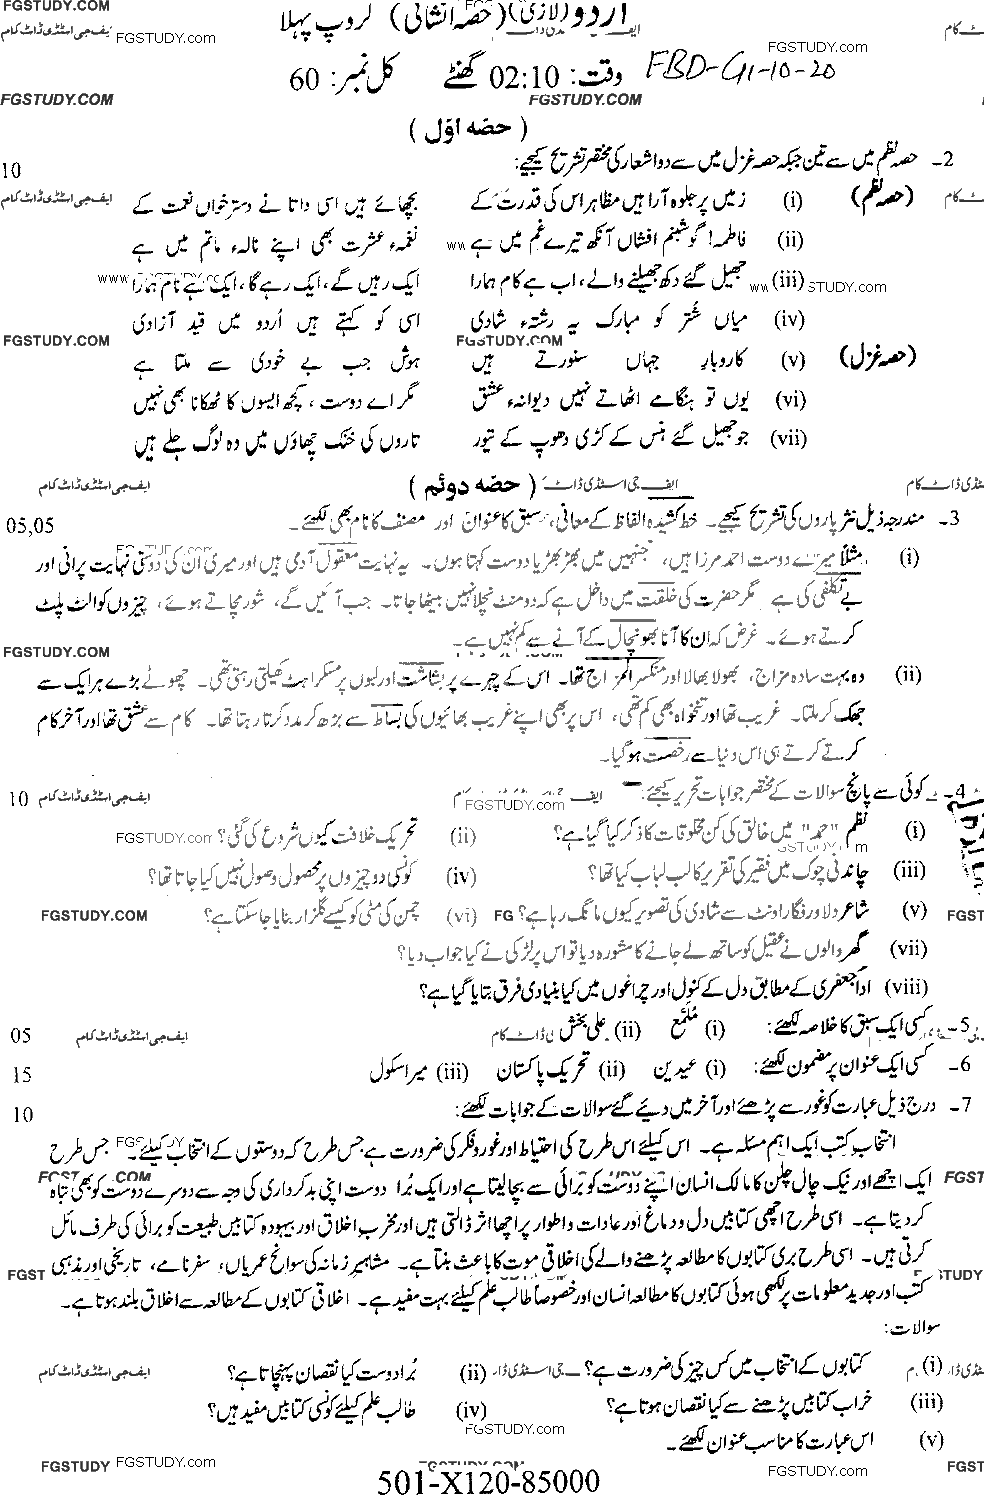 FGSTUDY.COM
اردو (لازمی) (حصہ انشائی) گروپ پہلا
FGSTUDY.com
ایف جی اسٹڈی ڈاٹ کام
FGSTUDY.com
وقت: 02:10 گھنٹے کل نمبر: 60 FBD-G1-10-20
FGSTUDY.COM FGSTUDY.COM
( حصہ اوّل )
2- حصہ نظم میں سے تین جبکہ حصہ غزل میں سے دو اشعار کی مختصر تشریح کیجیے: 10
(حصہ نظم) (i) زمیں پر جلوہ آرا ہیں مظاہر اس کی قدرت کے بچھائے ہیں اسی داتا نے دسترخواں نعمت کے
ایف جی اسٹڈی ڈاٹ کام
(ii) فاطمہ! گو شبنم افشاں آنکھ تیرے غم میں ہے نغمہء عشرت بھی اپنے نالہء ماتم میں ہے
(iii) جھیل گئے دکھ جھیلنے والے، اب ہے کام ہمارا ایک رہیں گے، ایک رہے گا، ایک ہے نام ہمارا
(iv) میاں شُتر کو مبارک یہ رشتہء شادی اسی کو کہتے ہیں اُردو میں قید آزادی
FGSTUDY.COM FGSTUDY.COM
(حصہ غزل) (v) کاروبارِ جہاں سنورتے ہیں ہوش جب بے خودی سے ملتا ہے
(vi) یوں تو ہنگامے اٹھاتے نہیں دیوانہء عشق مگر اے دوست، کچھ ایسوں کا ٹھکانا بھی نہیں
(vii) جو جھیل گئے ہنس کے کڑی دھوپ کے تیور تاروں کی خنک چھاؤں میں وہ لوگ جلے ہیں
( حصہ دوئم )
ایف جی اسٹڈی ڈاٹ کام
3- مندرجہ ذیل نثر پاروں کی تشریح کیجیے۔ خط کشیدہ الفاظ کے معانی، سبق کا عنوان اور مصنف کا نام بھی لکھئے۔ 05,05
(i) مثلاً میرے دوست احمد مرزا ہیں، جنہیں میں بھڑبھڑیا دوست کہتا ہوں۔ یہ نہایت معقول آدمی ہیں اور میری اُن کی دوستی نہایت پرانی اور
بے تکلفی کی ہے مگر حضرت کی خلقت میں داخل ہے کہ دو منٹ نچلا نہیں بیٹھا جاتا۔ جب آئیں گے، شور مچاتے ہوئے، چیزوں کو الٹ پلٹ
کرتے ہوئے۔ غرض کہ ان کا آنا بھونچال کے آنے سے کم نہیں ہے۔
FGSTUDY.COM
(ii) وہ بہت سادہ مزاج، بھولا بھالا اور منکسر المزاج تھا۔ اس کے چہرے پر بشاشت اور لبوں پر مسکراہٹ کھیلتی رہتی تھی۔ چھوٹے بڑے ہر ایک سے
جھک کر ملتا۔ غریب تھا اور تنخواہ بھی کم تھی، اس پر بھی اپنے غریب بھائیوں کی بساط سے بڑھ کر مدد کرتا رہتا تھا۔ کام سے عشق تھا اور آخر کام
کرتے کرتے ہی اس دنیا سے رخصت ہو گیا۔
4- کوئی سے پانچ سوالات کے مختصر جوابات تحریر کیجیے: 10
ایف جی اسٹڈی ڈاٹ کام
FGSTUDY.com
(i) نظم "حمد" میں خالق کی کن مخلوقات کا ذکر کیا گیا ہے؟ (ii) تحریک خلافت کیوں شروع کی گئی؟
FGSTUDY.com
(iii) چاندنی چوک میں فقیر کی تقریر کا لب لباب کیا تھا؟ (iv) کونسی دو چیزوں پر محصول وصول نہیں کیا جاتا تھا؟
(v) شاعر دلاور فگار اونٹ سے شادی کی تصویر کیوں مانگ رہا ہے؟ (vi) چمن کی مٹی کو کیسے گلزار بنایا جا سکتا ہے؟
FGSTUDY.COM
(vii) گھر والوں نے عقیل کو ساتھ لے جانے کا مشورہ دیا تو اس پر لڑکی نے کیا جواب دیا؟
(viii) ادا جعفری کے مطابق دل کے کنول اور چراغوں میں کیا بنیادی فرق بتایا گیا ہے؟
5- کسی ایک سبق کا خلاصہ لکھئے: (i) مُلمّع (ii) علی بخش 05
ایف جی اسٹڈی ڈاٹ کام
6- کسی ایک عنوان پر مضمون لکھئے: (i) عیدین (ii) تحریک پاکستان (iii) میرا سکول 15
7- درج ذیل عبارت کو غور سے پڑھئے اور آخر میں دیئے گئے سوالات کے جوابات لکھئے: 10
انتخاب کتب ایک اہم مسئلہ ہے۔ اس کیلئے اس طرح کی احتیاط اور غور و فکر کی ضرورت ہے جس طرح کہ دوستوں کے انتخاب کیلئے۔ جس طرح
ایک اچھے اور نیک چال چلن کا مالک انسان اپنے دوست کو برائی سے بچا لیتا ہے اور ایک بُرا دوست اپنی بدکرداری کی وجہ سے دوسرے دوست کو بھی تباہ
کر دیتا ہے۔ اسی طرح اچھی کتابیں دل و دماغ اور عادات و اطوار پر اچھا اثر ڈالتی ہیں اور مخرب اخلاق اور بیہودہ کتابیں طبیعت کو برائی کی طرف مائل
کرتی ہیں۔ اسی طرح بری کتابوں کا مطالعہ پڑھنے والے کی اخلاقی موت کا باعث بنتا ہے۔ مشاہیر زمانہ کی سوانح عمریاں، سفر نامے، تاریخی اور مذہبی
کتب اور جدید معلومات پر لکھی ہوئی کتابوں کا مطالعہ انسان اور خصوصاً طالب علم کیلئے بہت مفید ہے۔ اخلاقی کتابوں کے مطالعہ سے اخلاق بلند ہوتا ہے۔
سوالات:
(i) کتابوں کے انتخاب میں کس چیز کی ضرورت ہے؟ (ii) بُرا دوست کیا نقصان پہنچاتا ہے؟
ایف جی اسٹڈی ڈاٹ کام
(iii) خراب کتابیں پڑھنے سے کیا نقصان ہوتا ہے؟ (iv) طالب علم کیلئے کونسی کتابیں مفید ہیں؟
FGSTUDY.com
(v) اس عبارت کا مناسب عنوان لکھئے۔
FGSTUDY FGSTUDY.com FGSTUDY.com
501-X120-85000